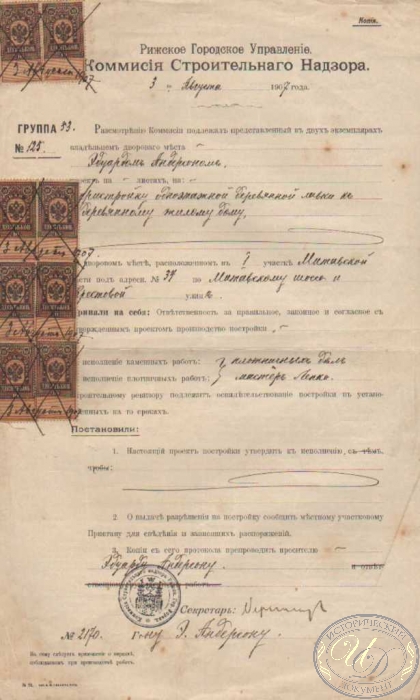 Копія.
Рижское Городское Управленіе.
Коммисія Строительнаго Надзора.
3 „ Августа 1907 года.
ГРУППА 53.
№ 125.
Разсмотрѣнію Комиссіи подлежалъ представленный въ двухъ экземплярахъ
владѣльцемъ дворового мѣста
Эдуардомъ Андерсономъ,
проектъ на – листахъ, на:
пристройку одноэтажной деревянной лавки къ
деревянному жилому дому,
дворовомъ мѣстѣ, расположенномъ въ I участкѣ Митавской
части подъ адресн. № 34 по Митавскому шоссе и
улицѣ.
приняли на себя: Отвѣтственность за правильное, законное и согласное съ
утвержденнымъ проектомъ производство постройки
исполненіе каменныхъ работъ: плотничныхъ дѣлъ
исполненіе плотничныхъ работъ: мастеръ
Строительному ревизору подлежитъ освидѣтельствованіе постройки въ устано-
вленныхъ на то срокахъ.
Постановили:
1. Настоящій проектъ постройки утвердить къ исполненію, съ тѣмъ,
чтобы:
2. О выдачѣ разрѣшенія на постройку сообщить мѣстному участковому
Приставу для свѣдѣнія и зависящихъ распоряженій.
3. Копію съ сего протокола препроводить просителю
Эдуарду Андерсону
Секретарь:
№ 2170. Г-ну Э. Андерсону.
ИСТОРИЧЕСКИЙ
ДОКУМЕНТ